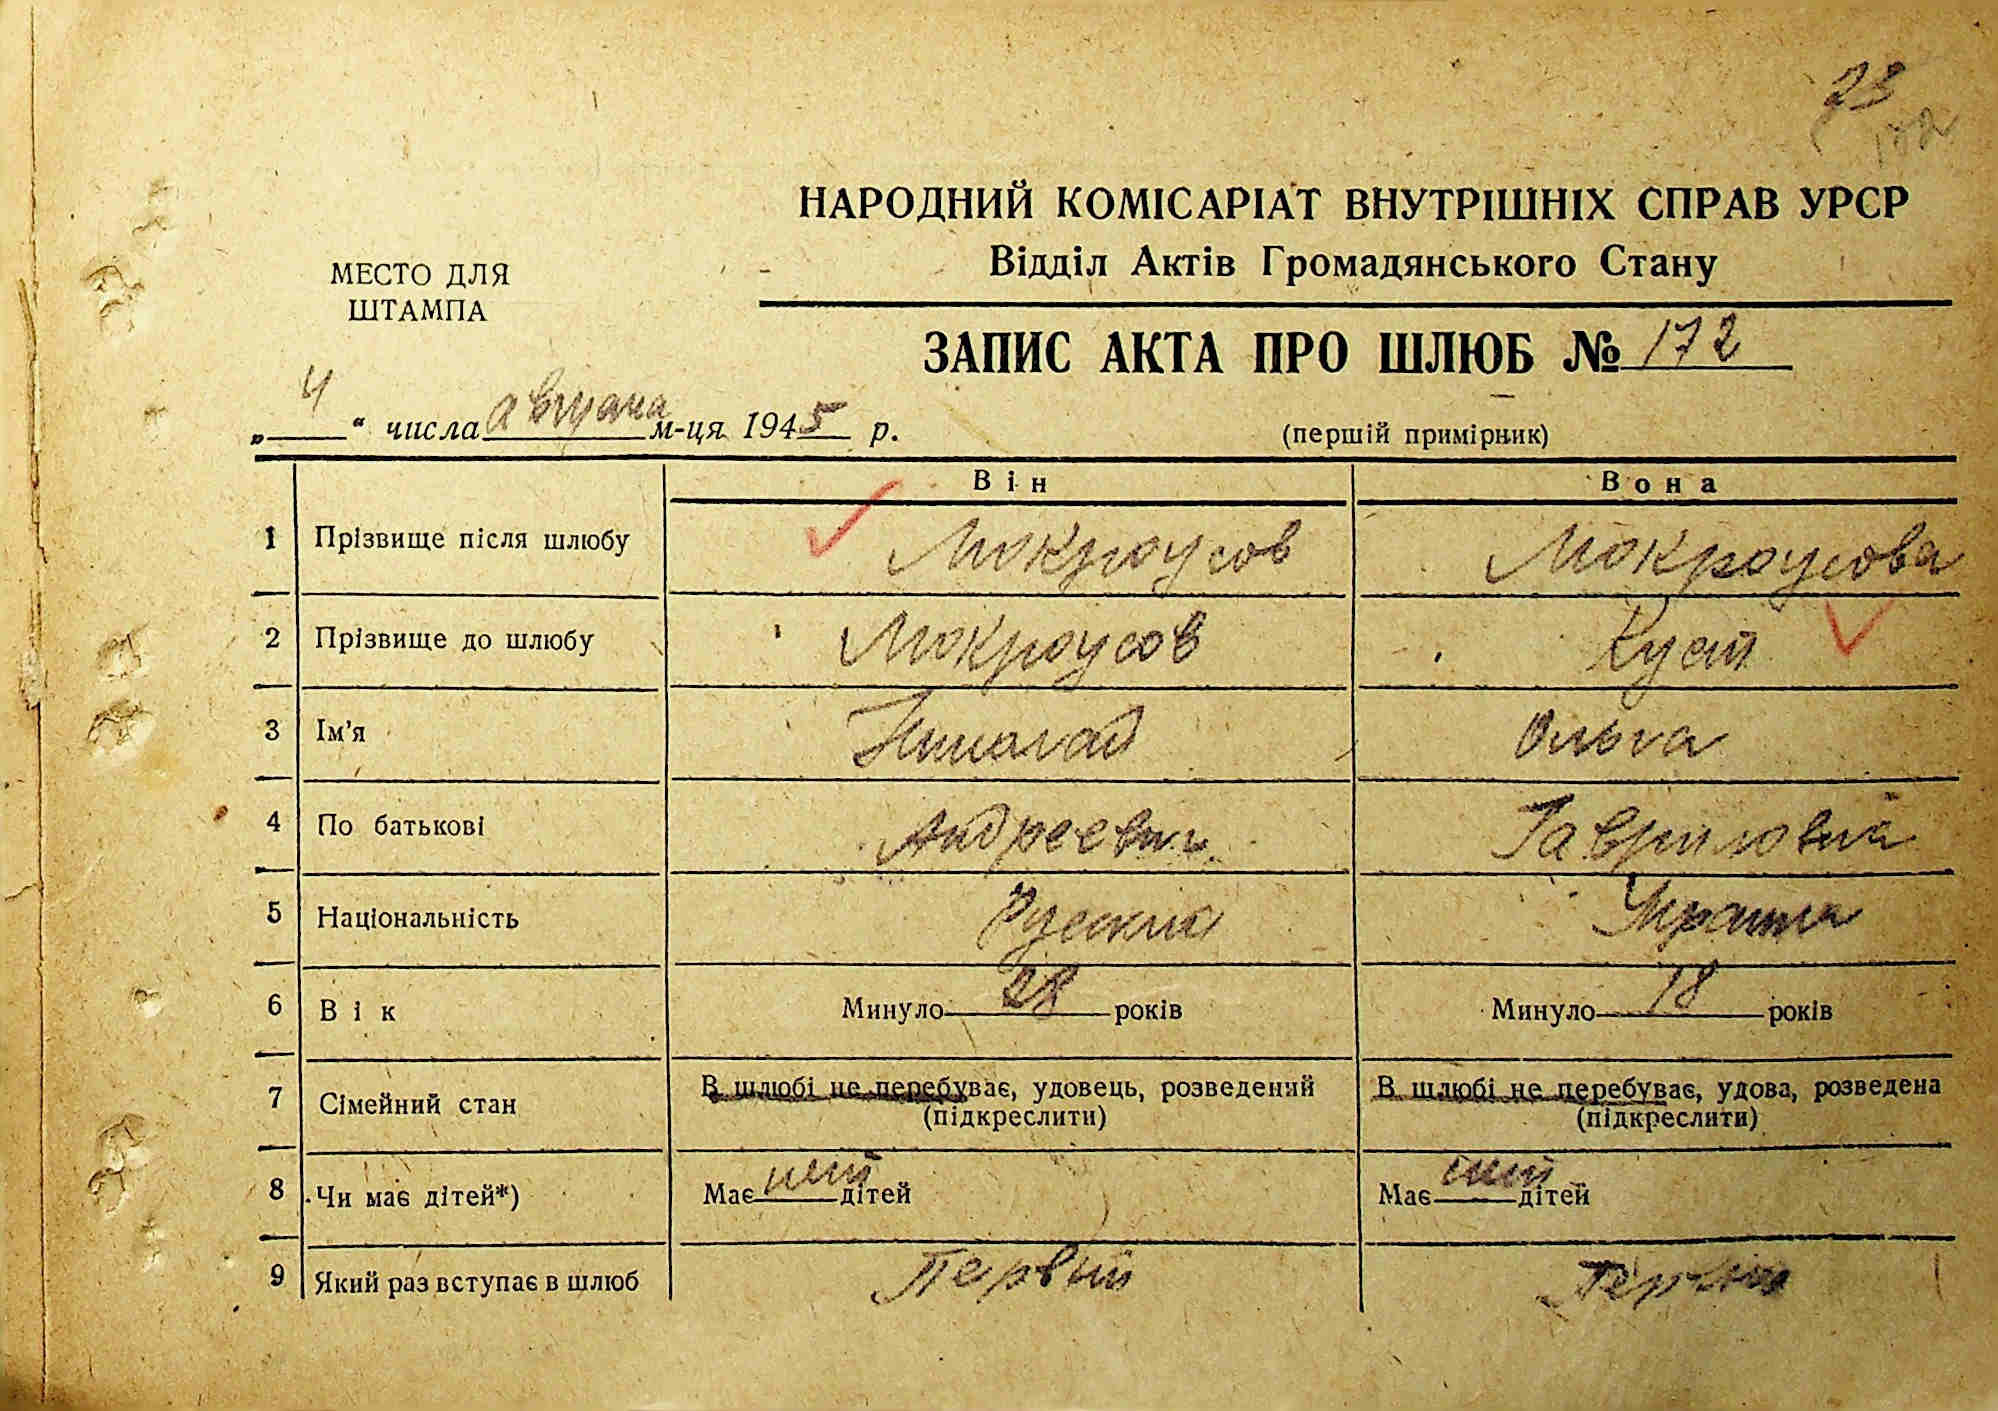 23
172
НАРОДНИЙ КОМІСАРІАТ ВНУТРІШНІХ СПРАВ УРСР
Відділ Актів Громадянського Стану
МЕСТО ДЛЯ
ШТАМПА
ЗАПИС АКТА ПРО ШЛЮБ № 172
„ 4 “ числа августа м-ця 1945 р.
(першій примірник)
Він Вона
1 Прізвище після шлюбу Мокроусов Мокроусова
2 Прізвище до шлюбу Мокроусов Куст
3 Ім'я Николай Ольга
4 По батькові Андреевич Гавриловна
5 Національність Русский Украинка
6 Вік Минуло 28 років Минуло 18 років
7 Сімейний стан В шлюбі не перебуває, удовець, розведений В шлюбі не перебуває, удова, розведена
(підкреслити) (підкреслити)
8 Чи має дітей*) Має нет дітей Має нет дітей
9 Який раз вступає в шлюб Первый Первый